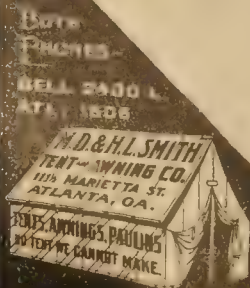 BOTH
PHONES
BELL 2300 L.
ATL. 1606
M.D. & H.L. SMITH
TENT AND AWNING CO.
MARIETTA ST.
ATLANTA, GA.
TENTS, AWNINGS, PAULINS
NO TENT WE CANNOT MAKE.